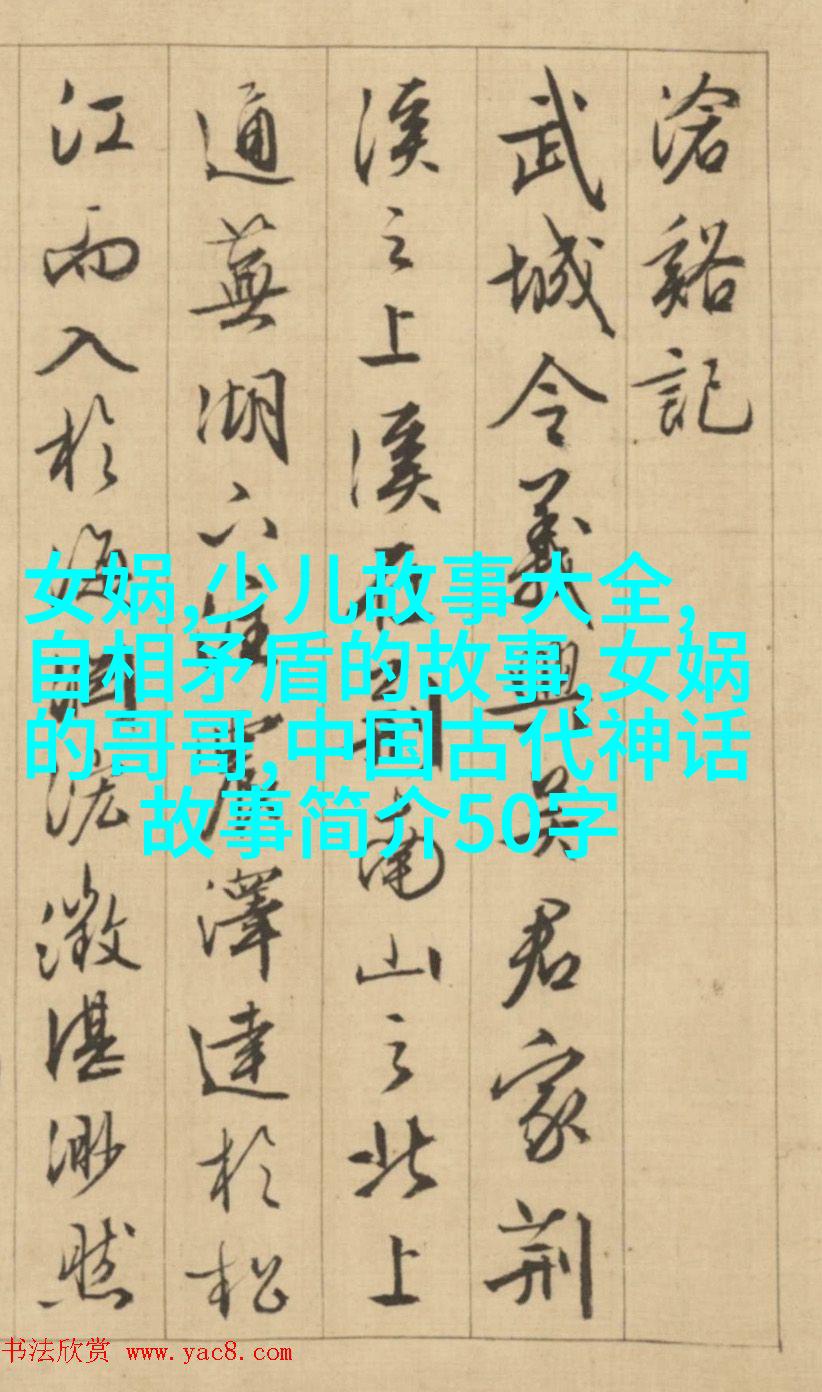 滄谿記
武城令義興吳君家荆
溪之上溪在荆南山之北上
通蕪湖下注震澤達於松
江而入於海澂湛渺然
女娲,少儿故事大全,
自相矛盾的故事,女娲
的哥哥,中国古代神话
故事简介50字
书法欣赏 www.yac8.com